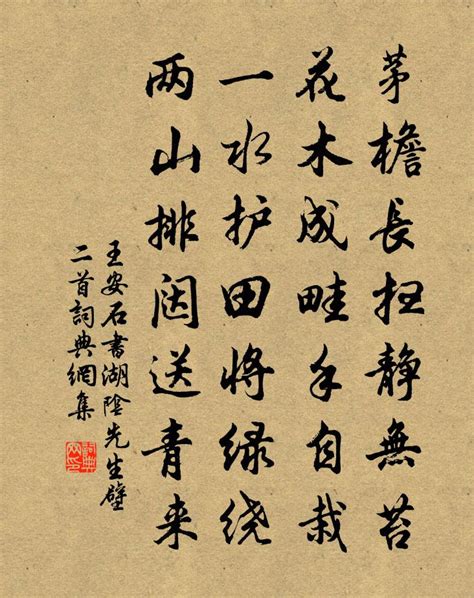 茅檐長扫静無苔
花木成畦手自栽
一水护田将绿绕
两山排闼送青来
王安石書湖陰先生壁
二首詞典網集